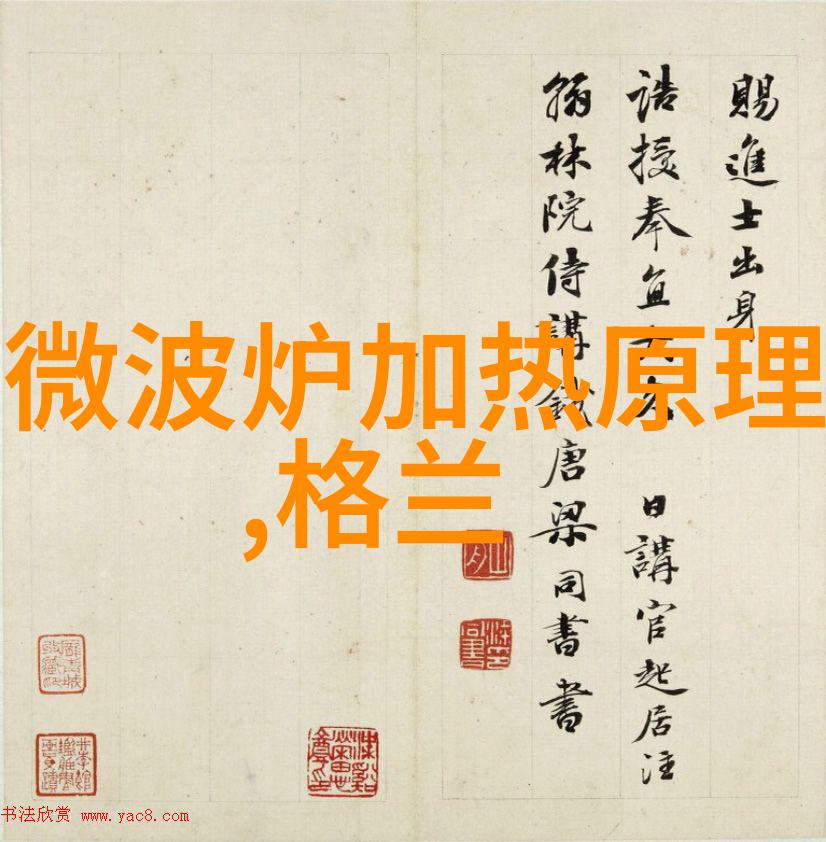 微波炉加热原理
,格兰
賜進士出身
誥授奉直大夫 日講官起居注
翰林院侍講錢唐梁同書書
书法欣赏 www.yac8.com